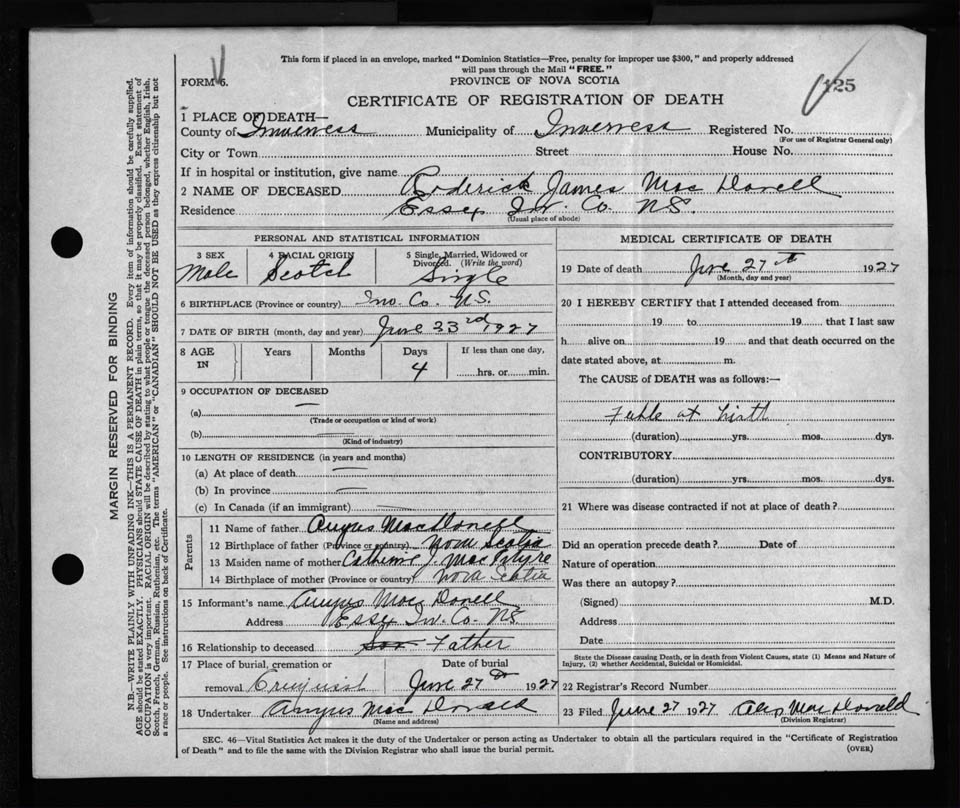 This form if placed in an envelope, marked "Dominion Statistics—Free, penalty for improper use $300," and properly addressed
will pass through the Mail "FREE."
FORM 6.
PROVINCE OF NOVA SCOTIA
125
CERTIFICATE OF REGISTRATION OF DEATH
1 PLACE OF DEATH—
County of Inverness Municipality of Inverness Registered No.
(For use of Registrar General only)
City or Town Street House No.
If in hospital or institution, give name
2 NAME OF DECEASED Roderick James Mac Donell
Residence Essex Inv. Co. N.S.
(Usual place of abode)
PERSONAL AND STATISTICAL INFORMATION
3 SEX 4 RACIAL ORIGIN 5 Single, Married, Widowed or
Divorced. (Write the word)
Male Scotch Single
6 BIRTHPLACE (Province or country) Inv. Co. N.S.
7 DATE OF BIRTH (month, day and year) June 23rd 1927
8 AGE IN Years Months Days If less than one day,
4 hrs. or min.
9 OCCUPATION OF DECEASED
(a) —
(Trade or occupation or kind of work)
(b) —
(Kind of industry)
10 LENGTH OF RESIDENCE (in years and months)
(a) At place of death —
(b) In province —
(c) In Canada (if an immigrant) —
Parents
11 Name of father Angus MacDonell
12 Birthplace of father (Province or country) Nova Scotia
13 Maiden name of mother Catherine J. MacIntyre
14 Birthplace of mother (Province or country) Nova Scotia
15 Informant's name Angus Mac Donell
Address Essex Inv. Co. N.S.
16 Relationship to deceased Son Father
17 Place of burial, cremation or Date of burial
removal Creignish June 27 1927
18 Undertaker Angus Mac Donald
(Name and address)
MEDICAL CERTIFICATE OF DEATH
19 Date of death June 27th 1927
(Month, day and year)
20 I HEREBY CERTIFY that I attended deceased from
19 to 19 that I last saw
h alive on 19 and that death occurred on the
date stated above, at m.
The CAUSE of DEATH was as follows:—
Feeble at birth
(duration) yrs. mos. dys.
CONTRIBUTORY
(duration) yrs. mos. dys.
21 Where was disease contracted if not at place of death?
Did an operation precede death? Date of
Nature of operation
Was there an autopsy?
(Signed) M.D.
Address
Date
State the Disease causing Death, or in death from Violent Causes, state (1) Means and Nature of
Injury, (2) whether Accidental, Suicidal or Homicidal.
22 Registrar's Record Number
23 Filed June 27 1927 Alex MacDonald
(Division Registrar)
SEC. 46—Vital Statistics Act makes it the duty of the Undertaker or person acting as Undertaker to obtain all the particulars required in the "Certificate of Registration
of Death" and to file the same with the Division Registrar who shall issue the burial permit.
(OVER)
MARGIN RESERVED FOR BINDING
N.B.—WRITE PLAINLY WITH UNFADING INK—THIS IS A PERMANENT RECORD. Every item of information should be carefully supplied.
AGE should be stated EXACTLY. PHYSICIANS should STATE CAUSE OF DEATH in plain terms, so that it may be properly classified. Exact statement of
OCCUPATION is very important. RACIAL ORIGIN will be described by stating to what people or tongue the deceased person belonged, whether English, Irish,
Scotch, French, German, Russian, Ruthenian, etc. The terms "AMERICAN" or "CANADIAN" SHOULD NOT BE USED as they express citizenship but not
a race or people. See instructions on back of Certificate.